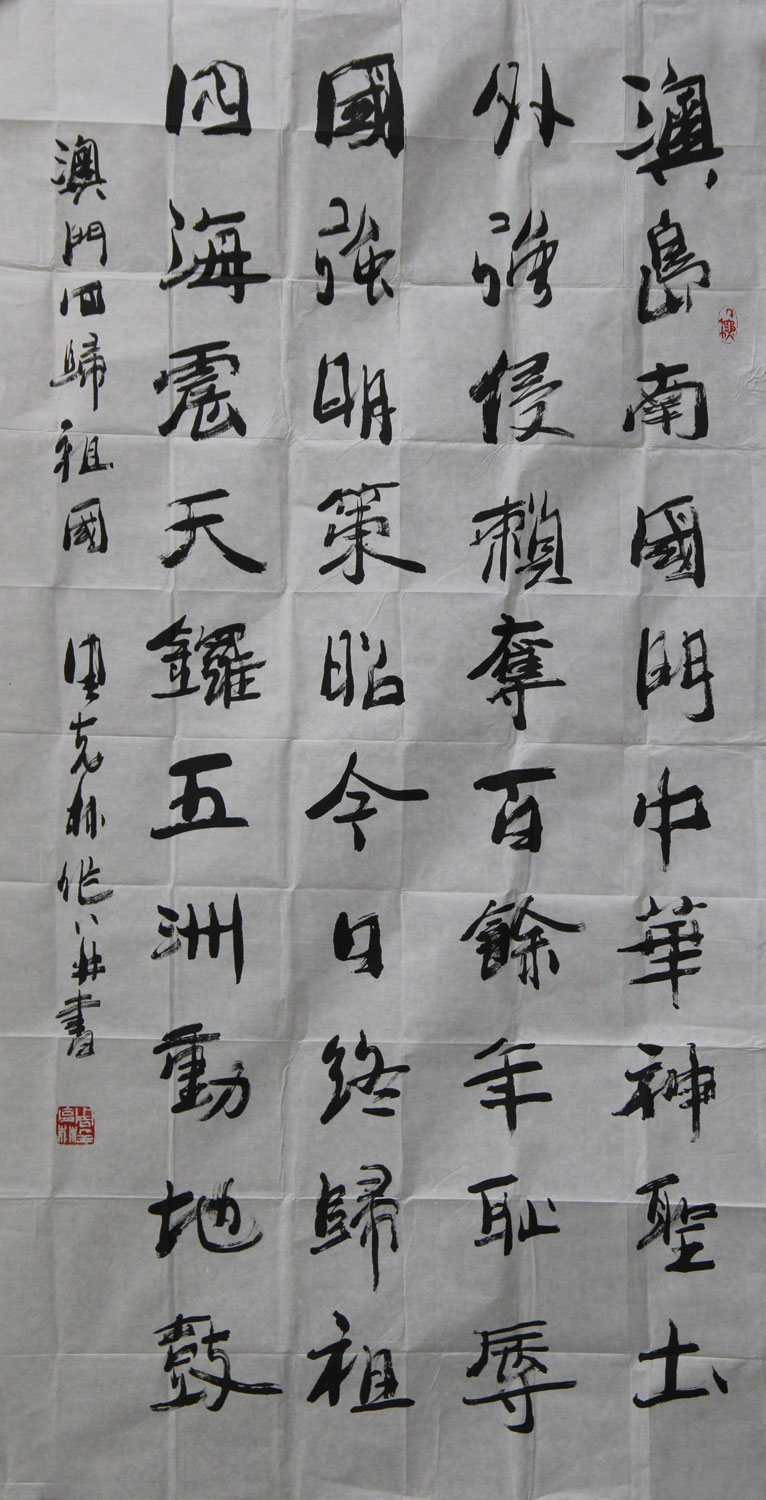 澳島南國門中華神聖土
外強侵賴奪百餘年恥辱
國強明策昭今日終歸祖
四海震天鑼五洲動地鼓
澳門回歸祖國 克林作並書